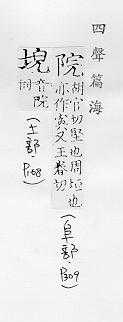 四聲篇海
院 胡官切堅也周垣也亦作寏又王眷切 (阜部.P309)
音院同 (土部.P108)